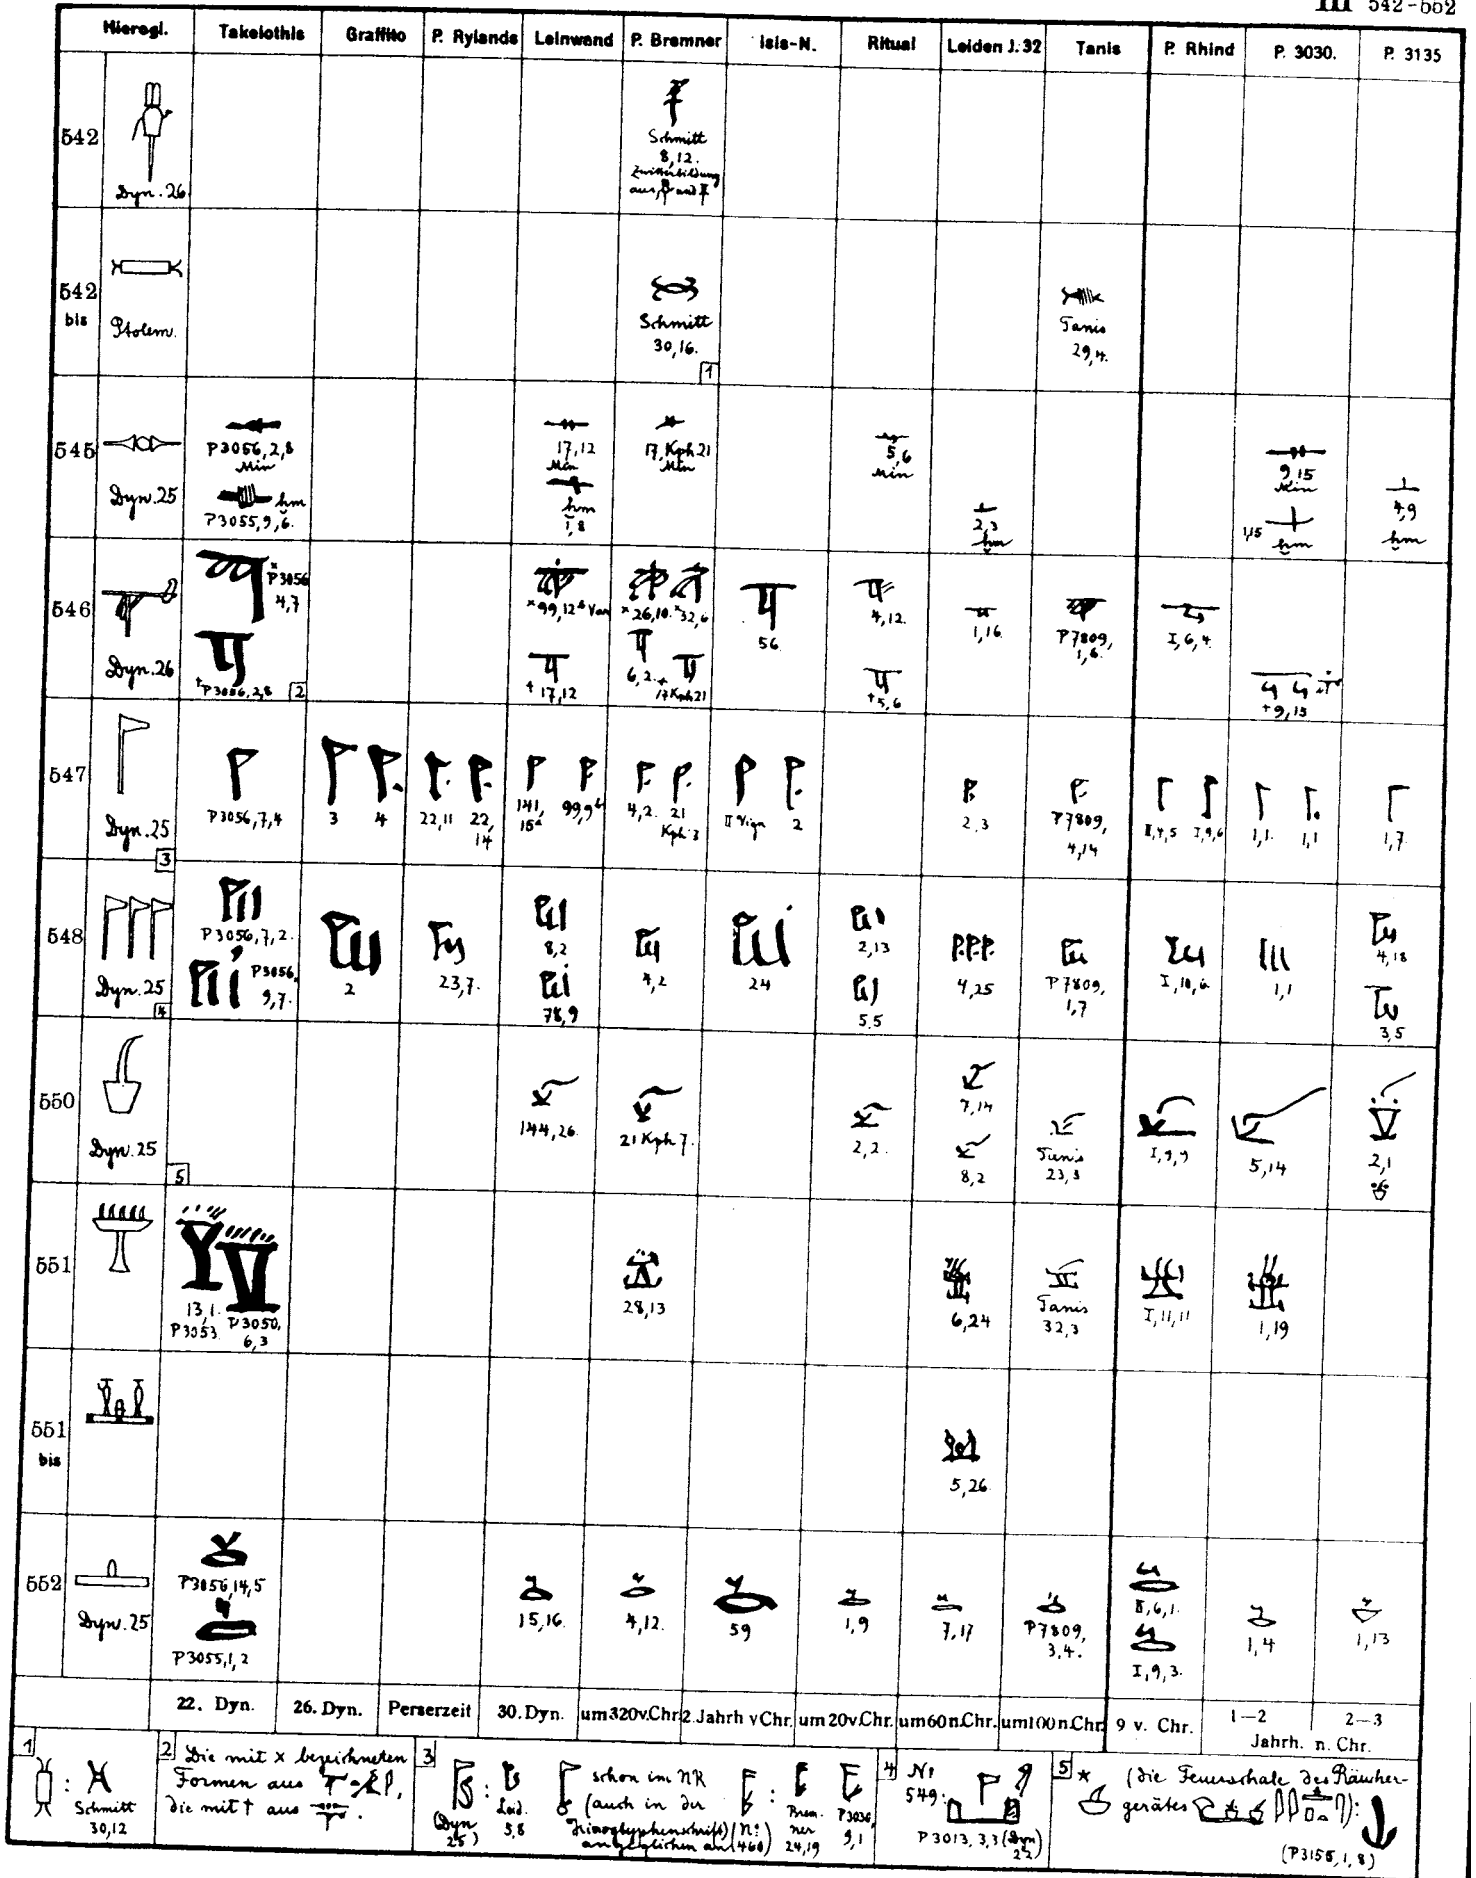 III 542-552
Hierogl. Takelothis Graffito P. Rylands Leinwand P. Bremner Isis-N. Ritual Leiden J. 32 Tanis P. Rhind P. 3030. P. 3135
542
Dyn. 26
Schmitt
8,12.
Zwitterbildung
aus und
542
bis
Ptolem.
Schmitt
30,16.
1
Tanis
29,4.
545
Dyn. 25
P3056,2,8
Min
hm
P3055,9,6.
17,12
Min
hm
1,8
17,Kph 21
Min
5,6
Min
2,3
hm
9,15
Min
1,15
hm
4,9
hm
546
Dyn. 26
× P3056
4,7
† P3056,2,8
2
× 99,12 Var
† 17,12
× 26,10. × 32,6
6,2. † 17 Kph 21
56
4,12.
† 5,6
1,16
P7809,
1,6.
I,6,4.
† 9,15
547
Dyn. 25
3
P3056,7,4
3 4
22,11 22,
14
141,
15a
99,9b
4,2. 21
Kph 3
II Vign 2
2,3
P7809,
4,14
II,4,5 I,9,6
1,1. 1,1
1,7.
548
Dyn. 25
4
P3056,7,2.
P3056,
9,7.
2
23,7.
8,2
78,9
4,2
24
2,13
5,5
4,25
P7809,
1,7
I,10,6.
1,1
4,18
3,5
550
Dyn. 25
5
144,26.
21 Kph 7.
2,2.
7,14
8,2
Tanis
23,3
I,9,9
5,14
2,1
551
13,1.
P3053.
P3050,
6,3
28,13
6,24
Tanis
32,3
I,11,11
1,19
551
bis
5,26
552
Dyn. 25
P3056,14,5
P3055,1,2
15,16.
4,12.
59
1,9
7,17
P7809,
3,4.
II,6,1.
I,9,3.
1,4
1,13
22. Dyn. 26. Dyn. Perserzeit 30. Dyn. um 320 v. Chr. 2. Jahrh v Chr. um 20 v. Chr. um 60 n. Chr. um 100 n. Chr. 9 v. Chr. 1—2 2—3
Jahrh. n. Chr.
1
Schmitt
30,12
2 Die mit × bezeichneten
Formen aus
die mit † aus
3
(Dyn
25)
Leid.
5,8
schon im NR
(auch in der
Hieroglyphenschrift)
angeglichen an
(No
460)
Bremner
24,19
P3036,
9,1
4 No
549:
P3013,3,3 (Dyn
22)
5 * (die Feuerschale des Räucher-
gerätes
(P3155,1,8)